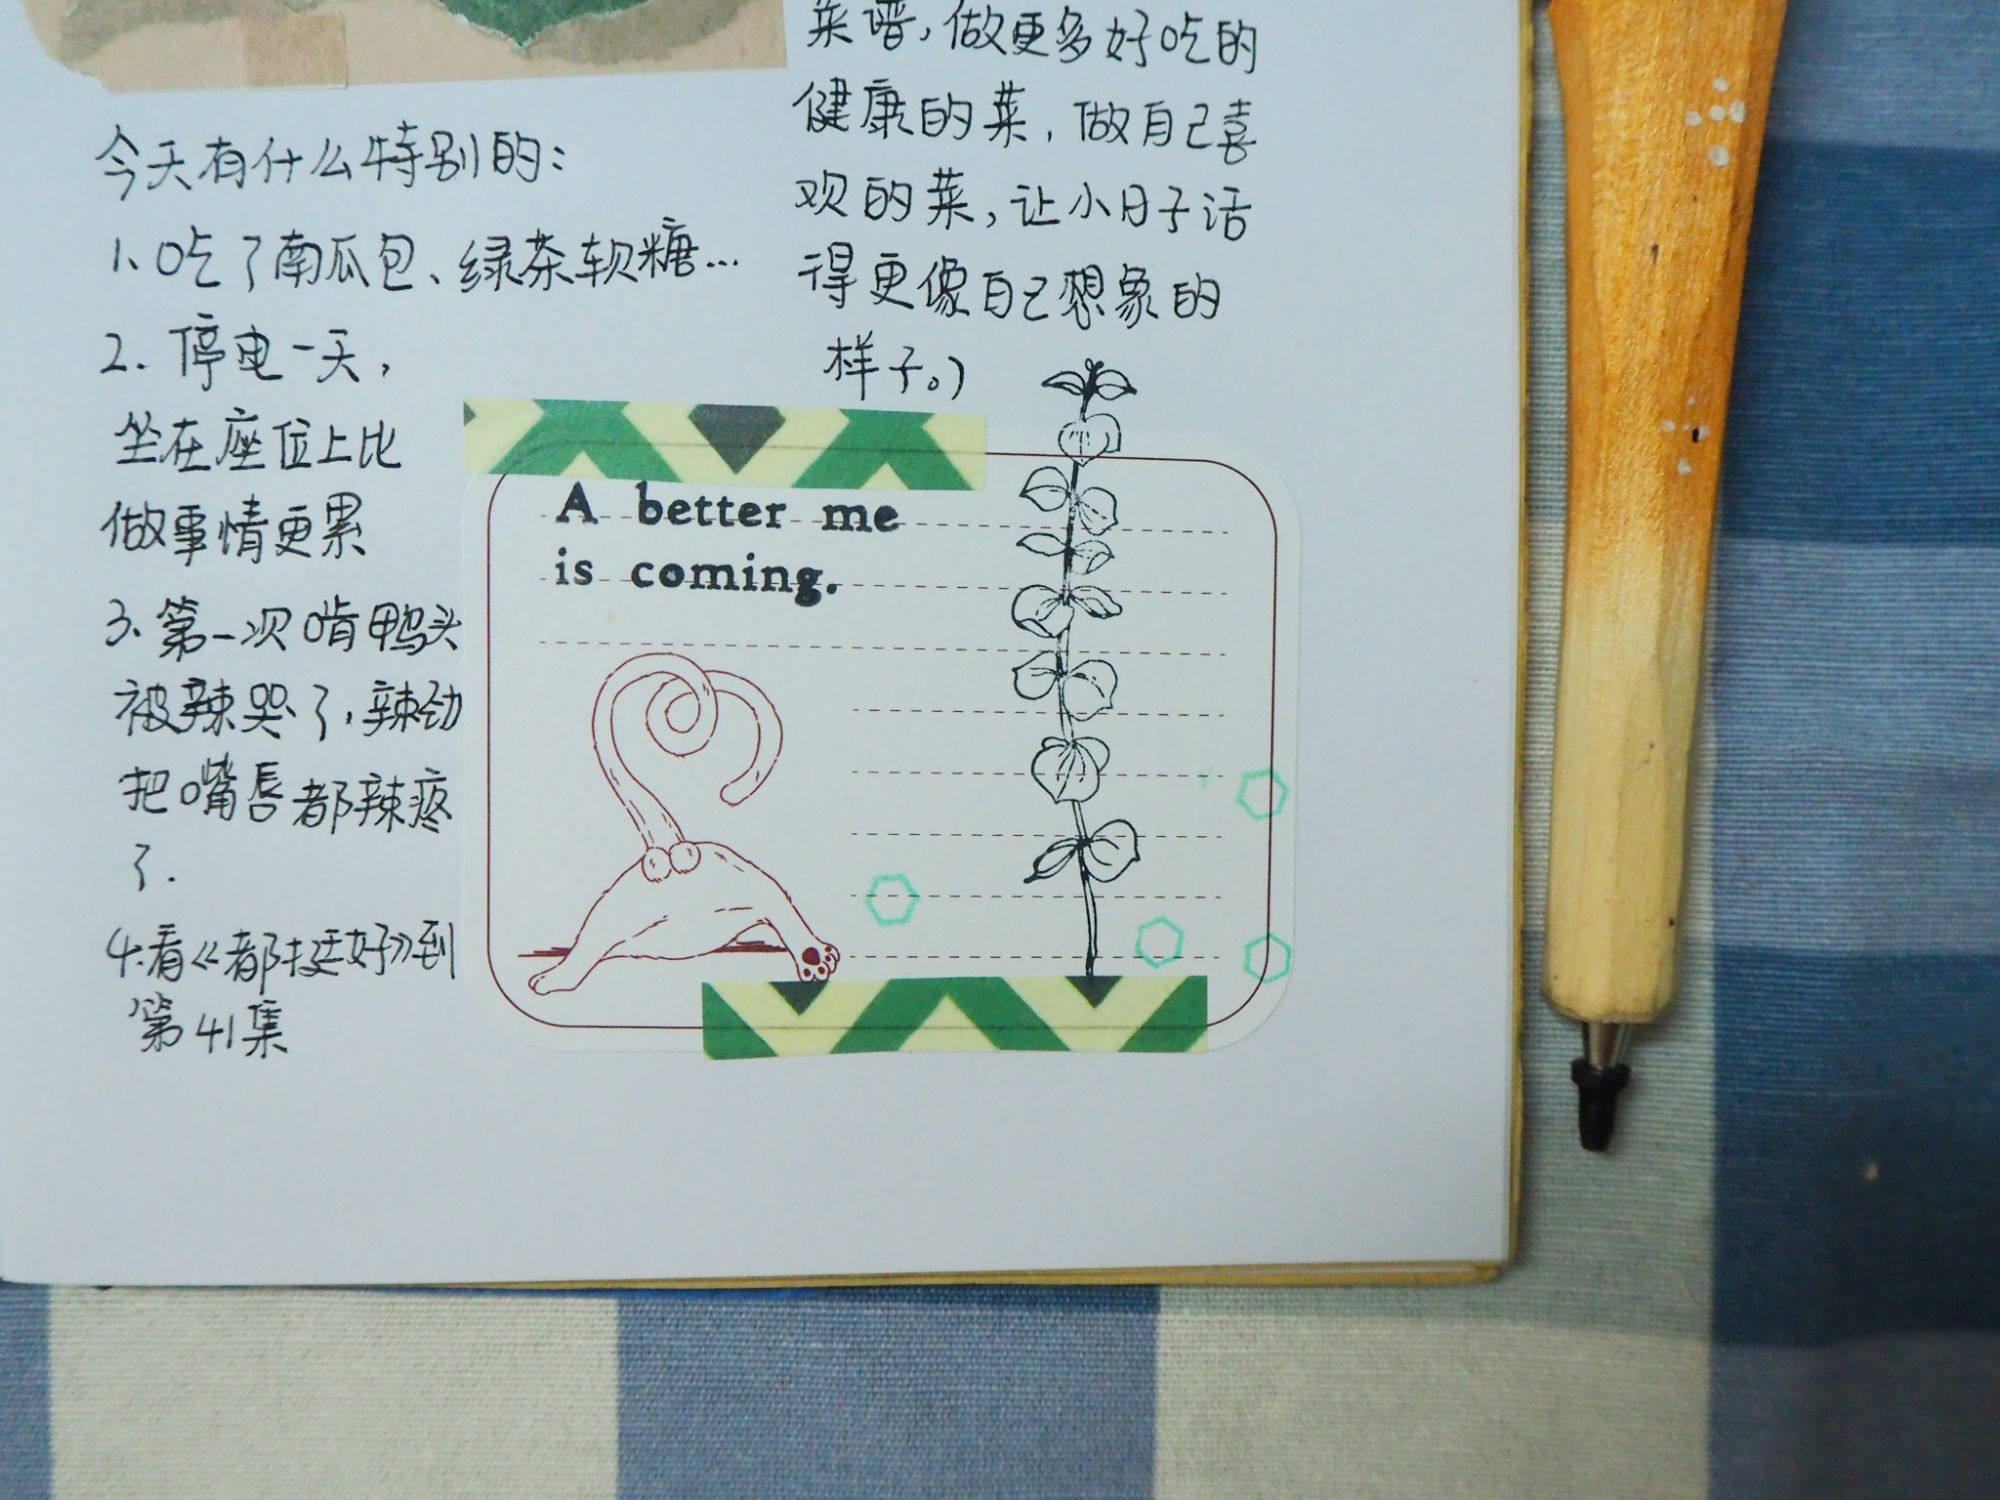 今天有什么特别的：
1、吃了南瓜包、绿茶软糖…
2. 停电一天，
坐在座位上比
做事情更累
3、第一次啃鸭头
被辣哭了，辣劲
把嘴唇都辣疼
了.
4.看《都挺好》到
第41集
菜谱，做更多好吃的
健康的菜，做自己喜
欢的菜，让小日子活
得更像自己想象的
样子。）
A better me
is coming.